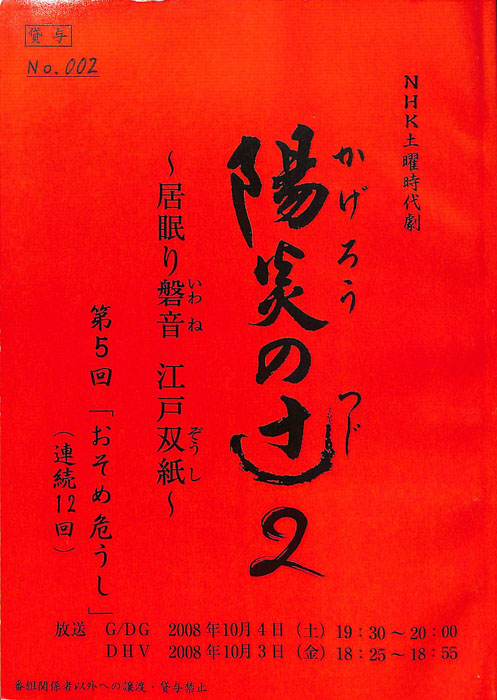 貸与
No.002
NHK土曜時代劇
かげろう つじ
陽炎の辻2
いわ ね ぞうし
～居眠り磐音 江戸双紙～
第5回「おそめ危うし」
(連続12回)
放送 G/DG 2008年10月4日(土)19:30～20:00
DHV 2008年10月3日(金)18:25～18:55
番組関係者以外への譲渡・貸与禁止